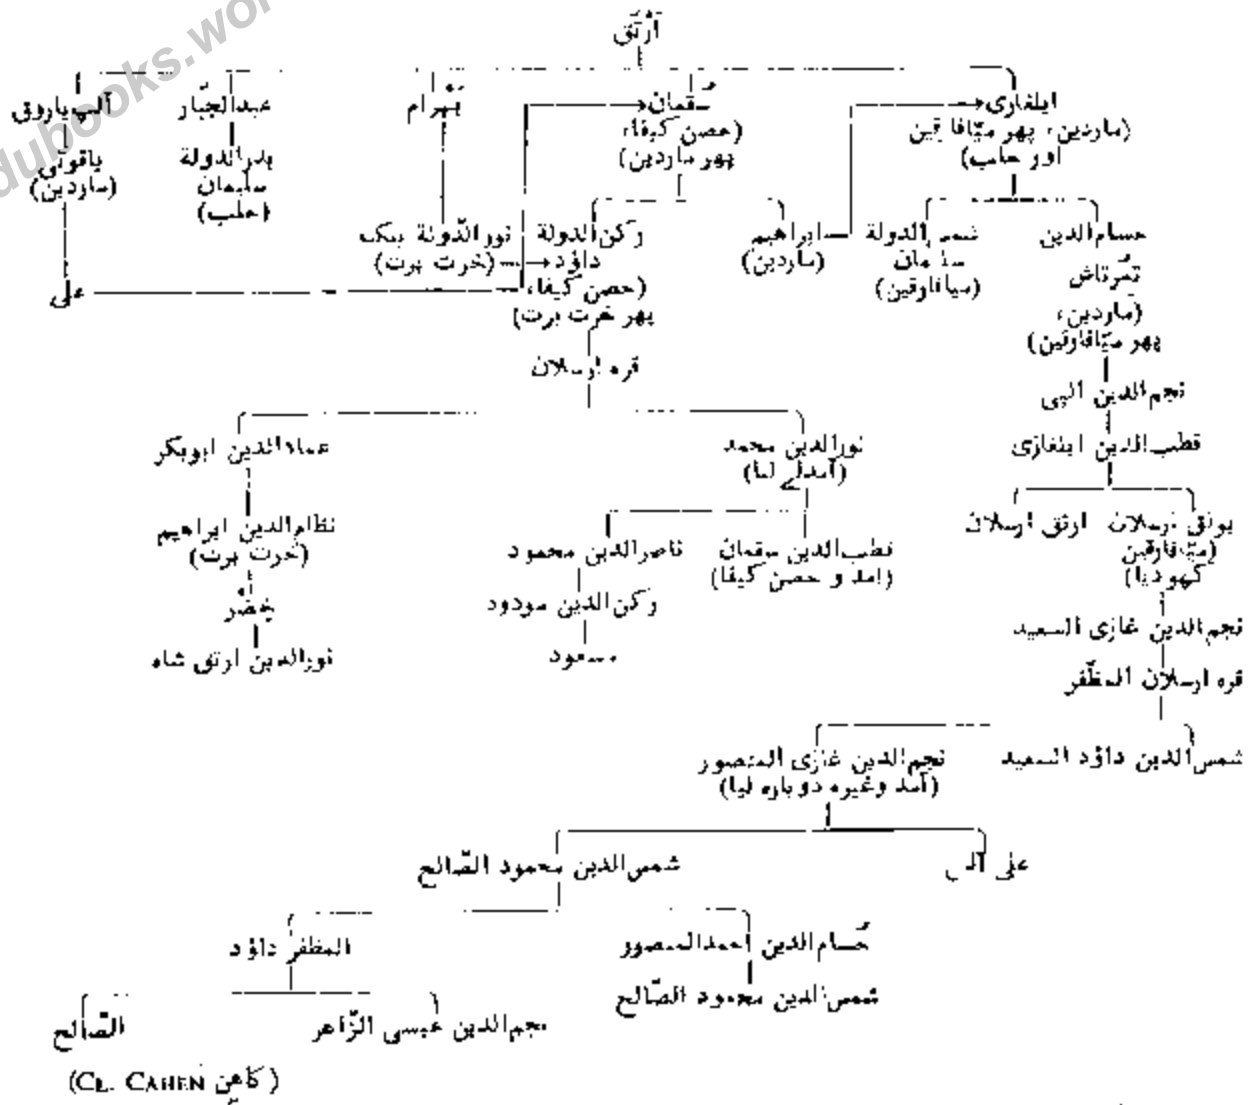 اُرتُق
ایلغازی
(ماردین، پھر میّافارقین
اور حلب)
سُقمان
(حصن کیفا،
پھر ماردین)
بَہرام
عبدالجبّار
آلپ یاروق
یاقوتی
(ماردین)
بدرالدولة
سلیمان
(حلب)
علی
نورالدّولة بلک
(خرت برت)
رکن الدولة
داؤد
(حصن کیفا،
پھر خرت برت)
ابراھیم
(ماردین)
شمس الدولة
سلیمان
(میافارقین)
حسام الدین
تمرتاش
(ماردین،
پھر میّافارقین)
قرہ ارسلان
نجم الدین الپی
قطب الدین ایلغازی
عمادالدین ابوبکر
نورالدین محمد
(آمد لے لیا)
یولق ارسلان
(میّافارقین
کھو دیا)
ارتق ارسلان
نظام الدین ابراھیم
(خرت برت)
ناصرالدین محمود
قطب الدین سقمان
(آمد و حصن کیفا)
خِضْر
رکن الدین مودود
نجم الدین غازی السعید
نورالدین ارتق شاہ
مسعود
قرہ ارسلان المظّفر
شمس الدین داؤد السعید
نجم الدین غازی المنصور
(آمد وغیرہ دوبارہ لیا)
علی الپی
شمس الدین محمود الصّالح
حُسام الدین احمد المنصور
المظفر داؤد
شمس الدین محمود الصّالح
نجم الدین عیسی الزّاھر
الصّالح
(کاھن CL. CAHEN)